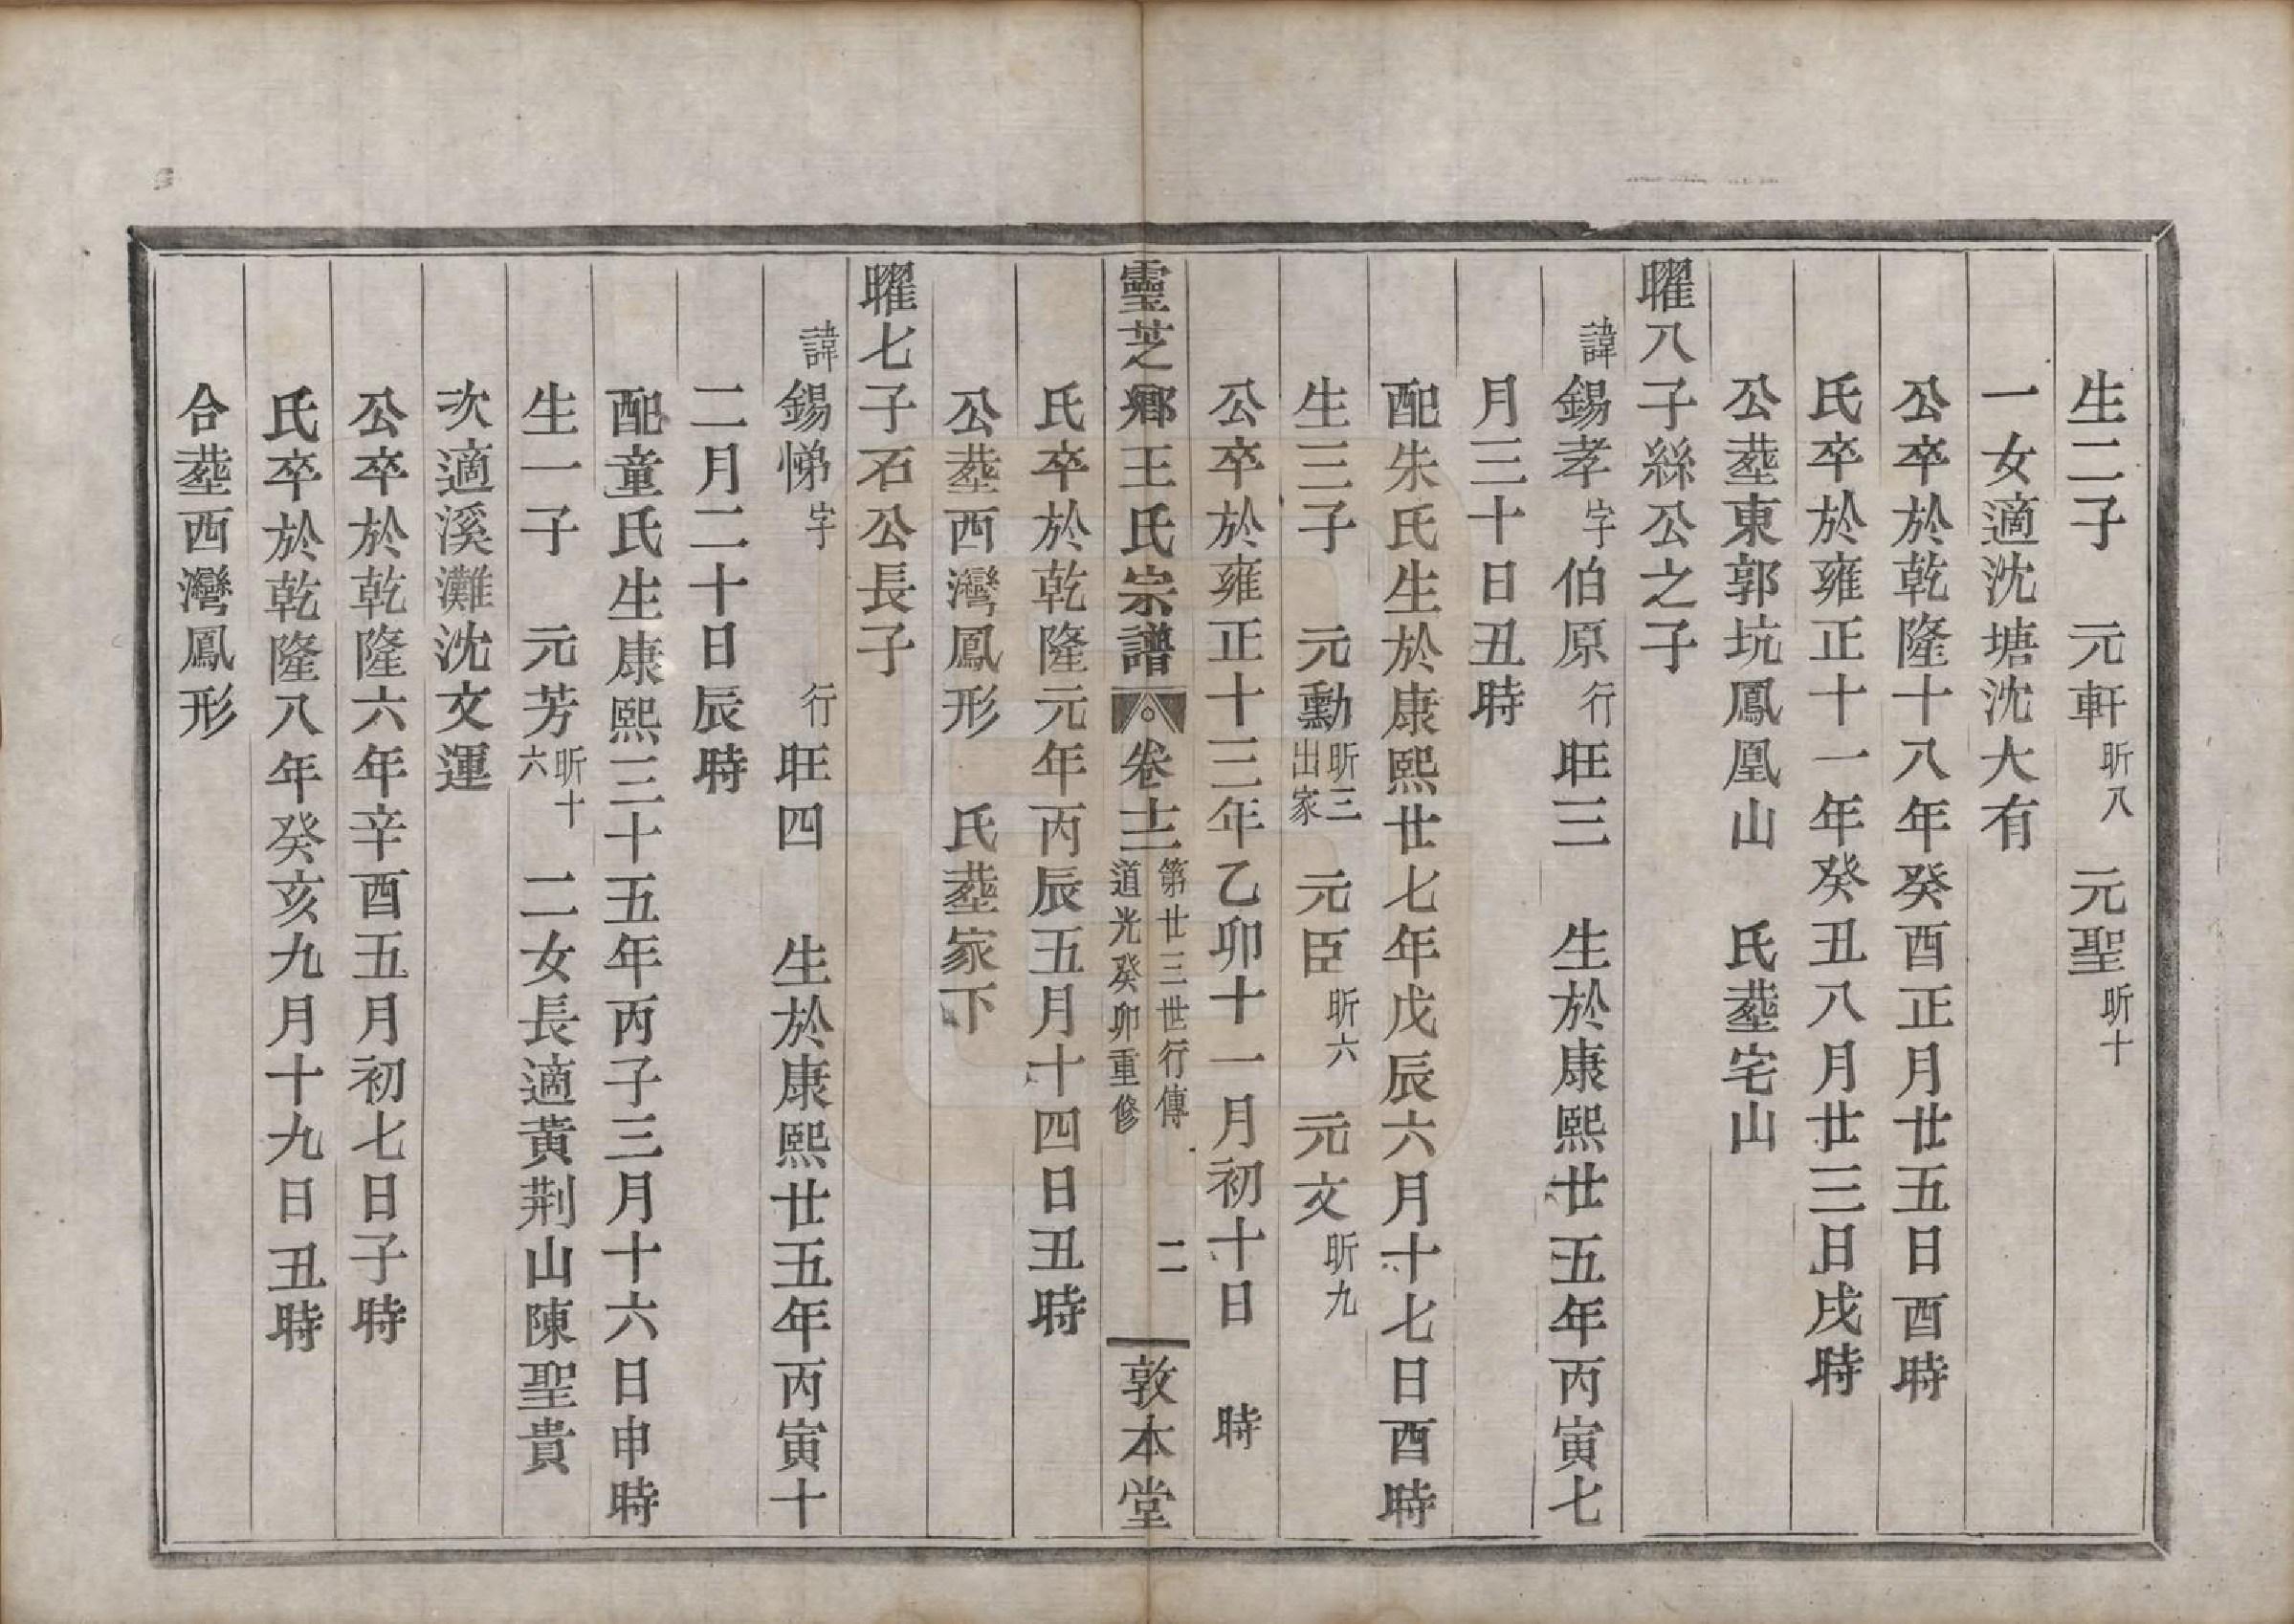 生二子　元軒昕八　元聖昕十
一女適沈塘沈大有
公卒於乾隆十八年癸酉正月廿五日酉時
氏卒於雍正十一年癸丑八月廿三日戌時
公塟東郭坑鳳凰山　氏塟宅山
曜八子絲公之子
諱錫孝字伯原行旺三　生於康熙廿五年丙寅七
月三十日丑時
配朱氏生於康熙廿七年戊辰六月十七日酉時
生三子　元勳昕三出家　元臣昕六　元文昕九
公卒於雍正十三年乙卯十一月初十日　時
靈芝鄉王氏宗譜　卷十二　第廿三世行傳　道光癸卯重修　二　敦本堂
氏卒於乾隆元年丙辰五月十四日丑時
公塟西灣鳳形　氏塟家下
曜七子石公長子
諱錫悌字　行旺四　生於康熙廿五年丙寅十
二月二十日辰時
配童氏生康熙三十五年丙子三月十六日申時
生一子　元芳昕十六　二女長適黃荆山陳聖貴
次適溪灘沈文運
公卒於乾隆六年辛酉五月初七日子時
氏卒於乾隆八年癸亥九月十九日丑時
合塟西灣鳳形